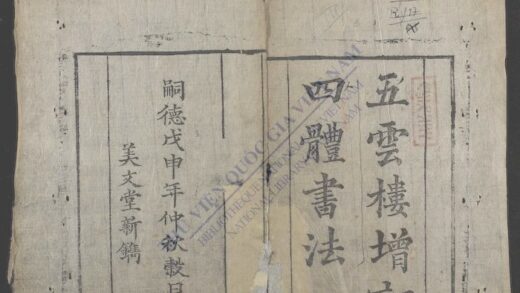 五雲樓增
四體書法
嗣德戊申年仲秋穀日
美文堂新鐫
THƯ VIỆN QUỐC GIA VIỆT NAM
BIBLIOTHÈQUE NATIONALE DU VIETNAM
NATIONAL LIBRARY OF VIETNAM